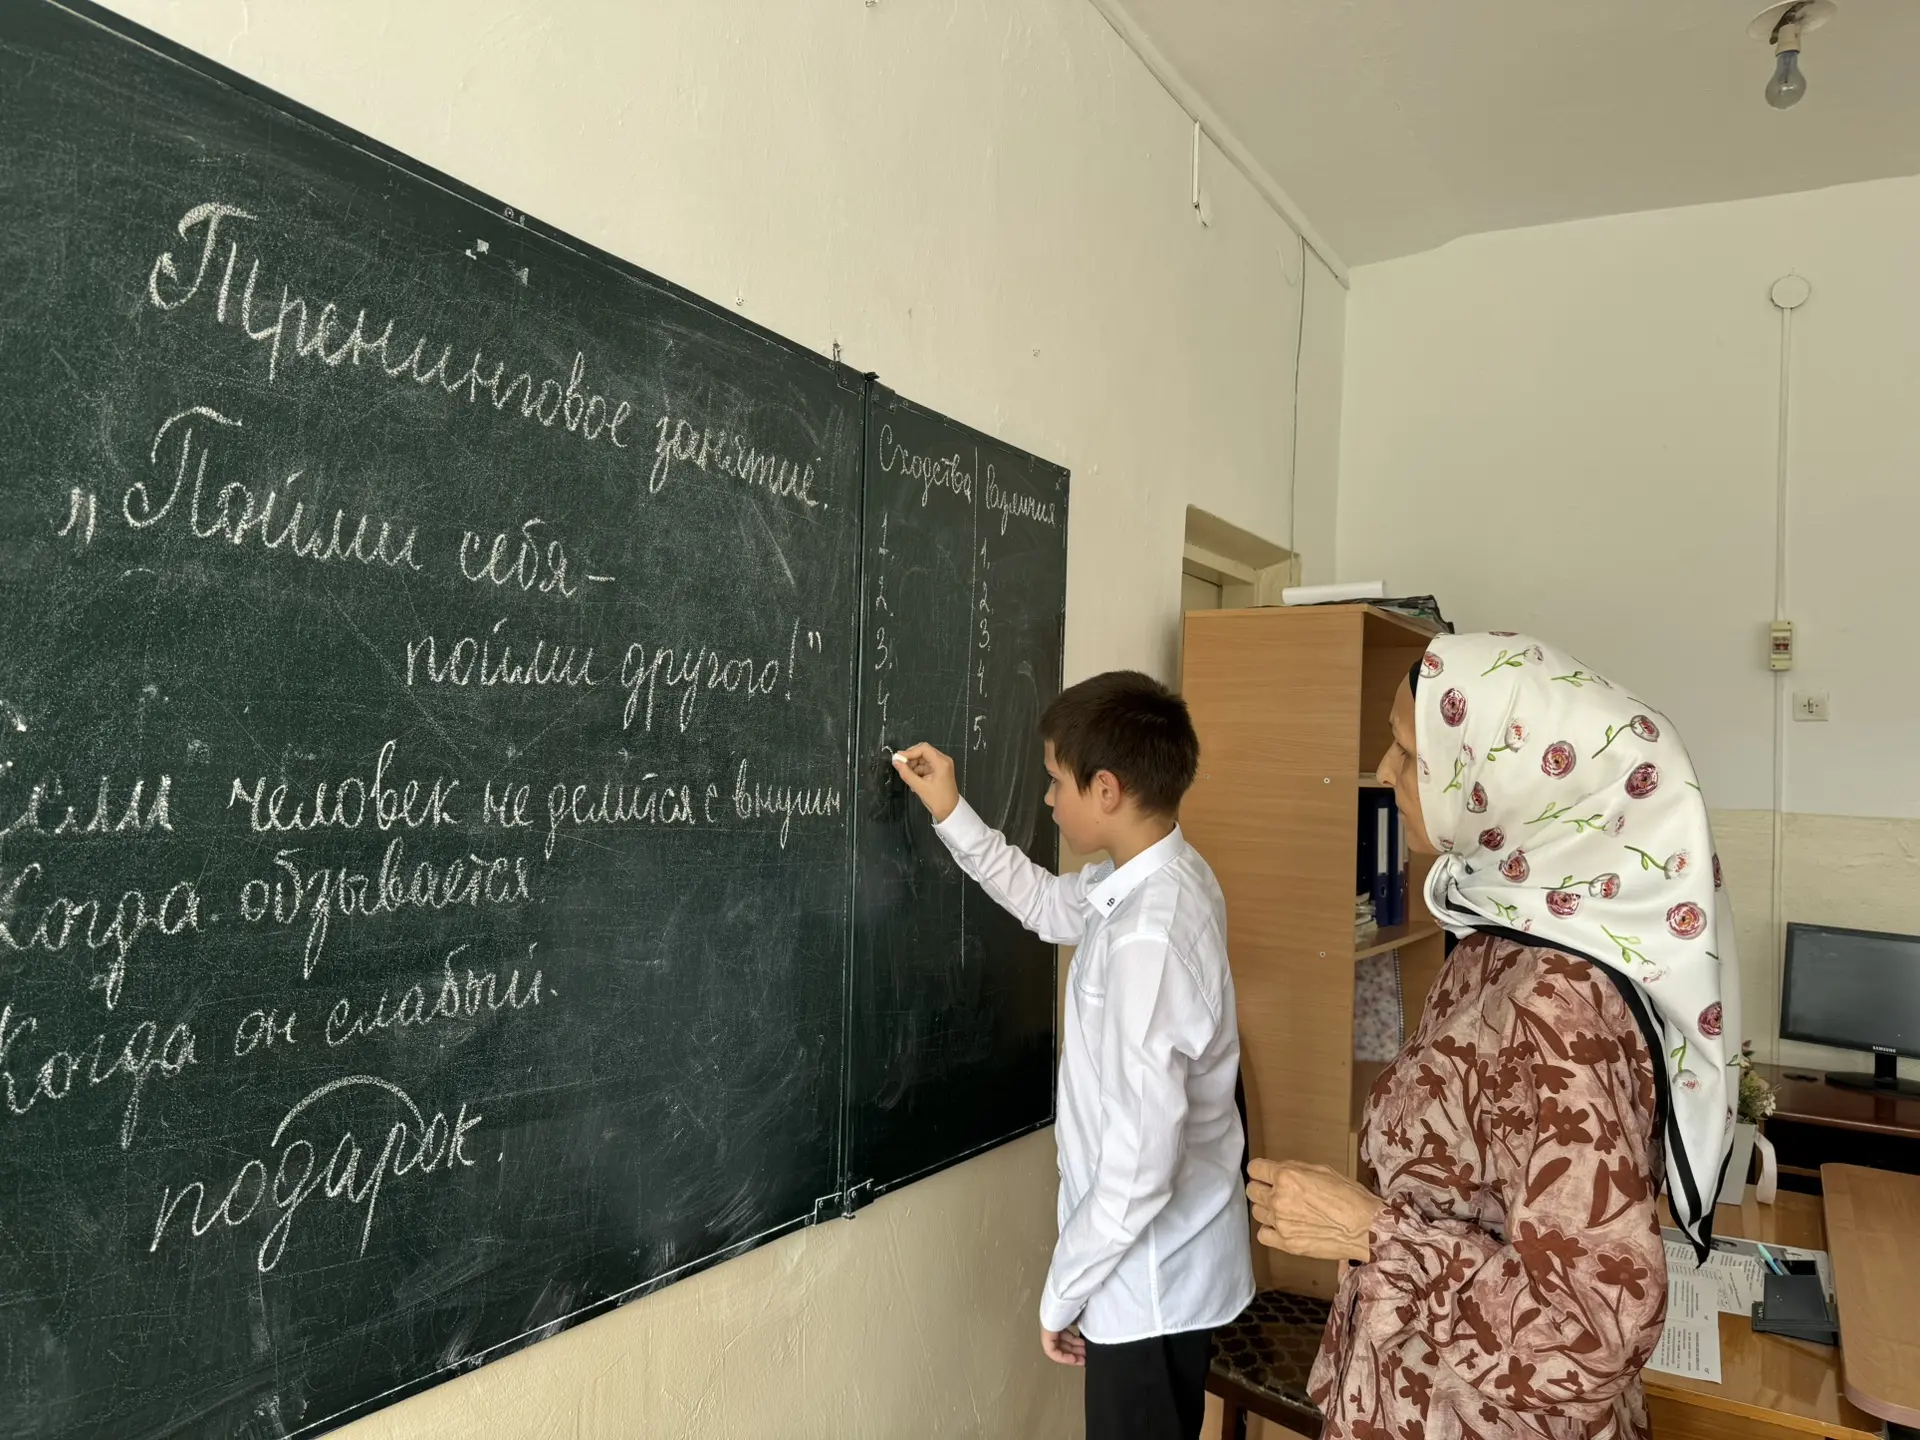 Тренинговое занятие.
„Пойми себя –
пойми другого!"
Если человек не делится с внуши
Когда обзывается.
Когда он слабый.
подарок.
Сходства Различия
1. 1.
2. 2.
3. 3.
4 4.
5.
SAMSUNG